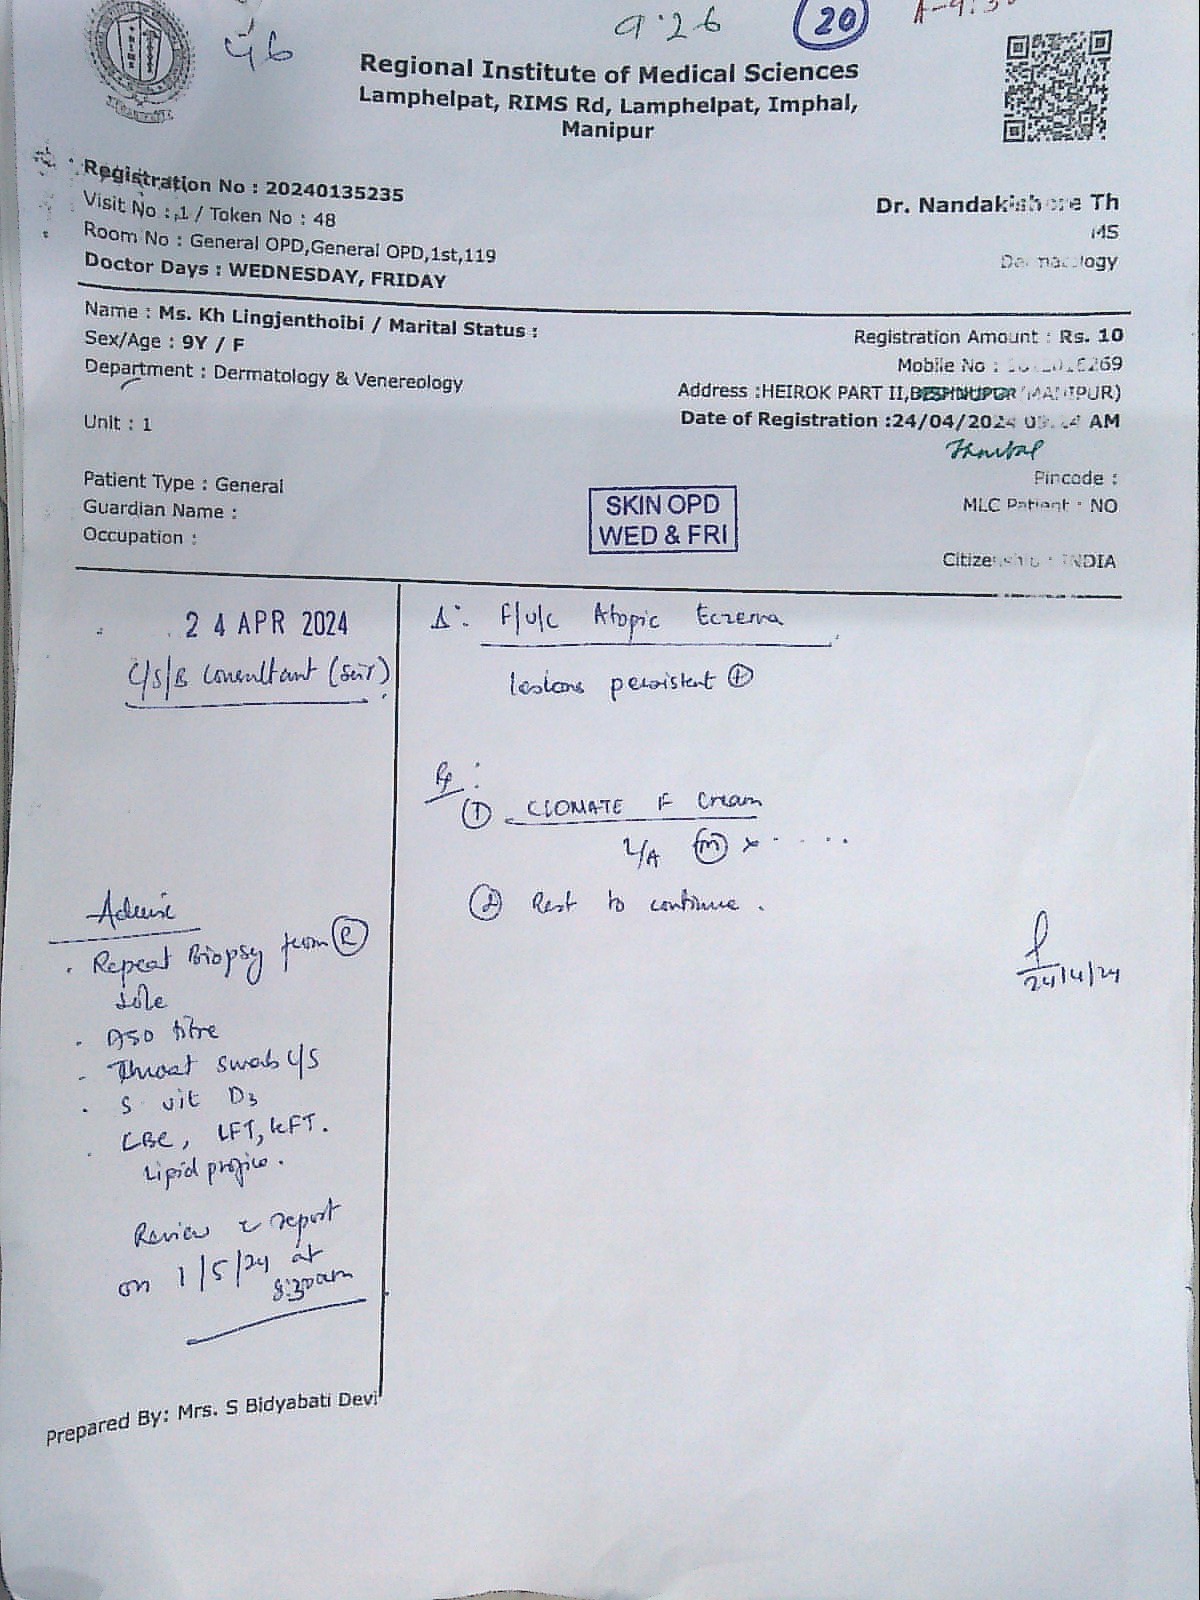 46
9.26
20
Regional Institute of Medical Sciences
Lamphelpat, RIMS Rd, Lamphelpat, Imphal,
Manipur
Registration No : 20240135235
Visit No : 1 / Token No : 48
Room No : General OPD,General OPD,1st,119
Doctor Days : WEDNESDAY, FRIDAY
Dr. Nandakishore Th
MS
Dermatology
Name : Ms. Kh Lingjenthoibi / Marital Status :
Sex/Age : 9Y / F
Department : Dermatology & Venereology
Unit : 1
Patient Type : General
Guardian Name :
Occupation :
Registration Amount : Rs. 10
Mobile No :
Address :HEIROK PART II,BISHNUPUR (MANIPUR)
Date of Registration :24/04/2024 AM
Thoubal
Pincode :
MLC Patient : NO
Citizenship : INDIA
SKIN OPD
WED & FRI
24 APR 2024
C/S/B Consultant
Δ: F/U/C Atopic Eczema
lesions persistent +
Rx :
1 CLOMATE F Cream
L/A m x
2 Rest to continue .
24/4/24
Advise
. Repeat Biopsy from R
sole
. ASO titre
- Throat swab C/S
. S vit D3
. CBC, LFT, KFT.
Lipid profile.
Review c report
on 1/5/24 at
8:30am
Prepared By: Mrs. S Bidyabati Devi